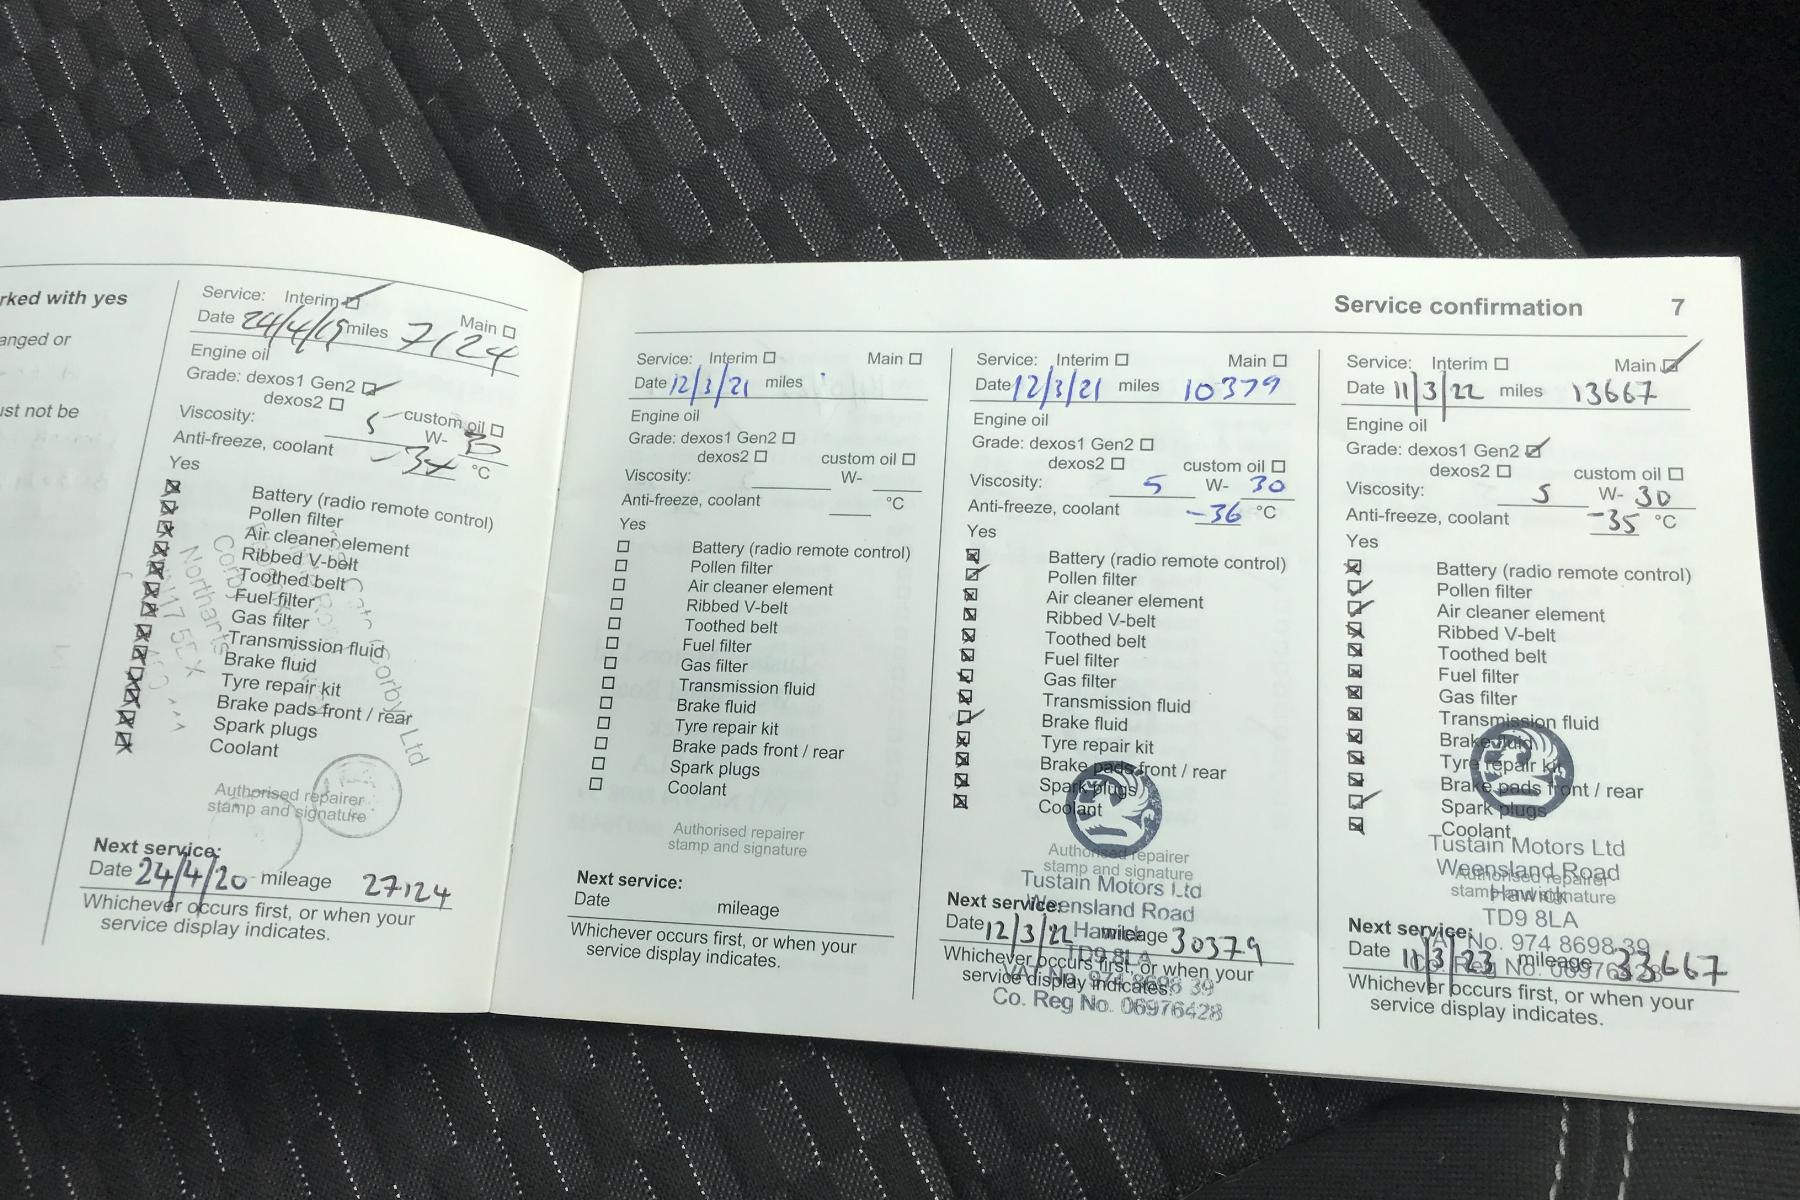 rked with yes
anged or
ust not be
Service: Interim
Main
Date 24/4/19 miles 7124
Engine oil
Grade: dexos1 Gen2
dexos2
custom oil
Viscosity: 5 W- 30
Anti-freeze, coolant °C
Yes
Battery (radio remote control)
Pollen filter
Air cleaner element
Ribbed V-belt
Toothed belt
Fuel filter
Gas filter
Transmission fluid
Brake fluid
Tyre repair kit
Brake pads front / rear
Spark plugs
Coolant
Corby Ltd
Northants
NN17 5EX
Authorised repairer
stamp and signature
Next service:
Date 24/4/20 mileage 27124
Whichever occurs first, or when your
service display indicates.
Service confirmation 7
Service: Interim Main
Date 12/3/21 miles
Engine oil
Grade: dexos1 Gen2
dexos2 custom oil
Viscosity: W-
Anti-freeze, coolant °C
Yes
Battery (radio remote control)
Pollen filter
Air cleaner element
Ribbed V-belt
Toothed belt
Fuel filter
Gas filter
Transmission fluid
Brake fluid
Tyre repair kit
Brake pads front / rear
Spark plugs
Coolant
Authorised repairer
stamp and signature
Next service:
Date mileage
Whichever occurs first, or when your
service display indicates.
Service: Interim Main
Date 12/3/21 miles 10379
Engine oil
Grade: dexos1 Gen2
dexos2 custom oil
Viscosity: 5 W- 30
Anti-freeze, coolant -36 °C
Yes
Battery (radio remote control)
Pollen filter
Air cleaner element
Ribbed V-belt
Toothed belt
Fuel filter
Gas filter
Transmission fluid
Brake fluid
Tyre repair kit
Brake pads front / rear
Spark plugs
Coolant
Authorised repairer
stamp and signature
Tustain Motors Ltd
Weensland Road
Hawick
TD9 8LA
VAT No. 974 8698 39
Co. Reg No. 06976428
Next service:
Date 12/3/22 mileage 30379
Whichever occurs first, or when your
service display indicates.
Service: Interim Main
Date 11/3/22 miles 13667
Engine oil
Grade: dexos1 Gen2
dexos2 custom oil
Viscosity: 5 W- 30
Anti-freeze, coolant -35 °C
Yes
Battery (radio remote control)
Pollen filter
Air cleaner element
Ribbed V-belt
Toothed belt
Fuel filter
Gas filter
Transmission fluid
Brake fluid
Tyre repair kit
Brake pads front / rear
Spark plugs
Coolant
Tustain Motors Ltd
Weensland Road
Hawick
TD9 8LA
VAT No. 974 8698 39
Co. Reg No. 06976428
Authorised repairer
stamp and signature
Next service:
Date 11/3/23 mileage 33667
Whichever occurs first, or when your
service display indicates.